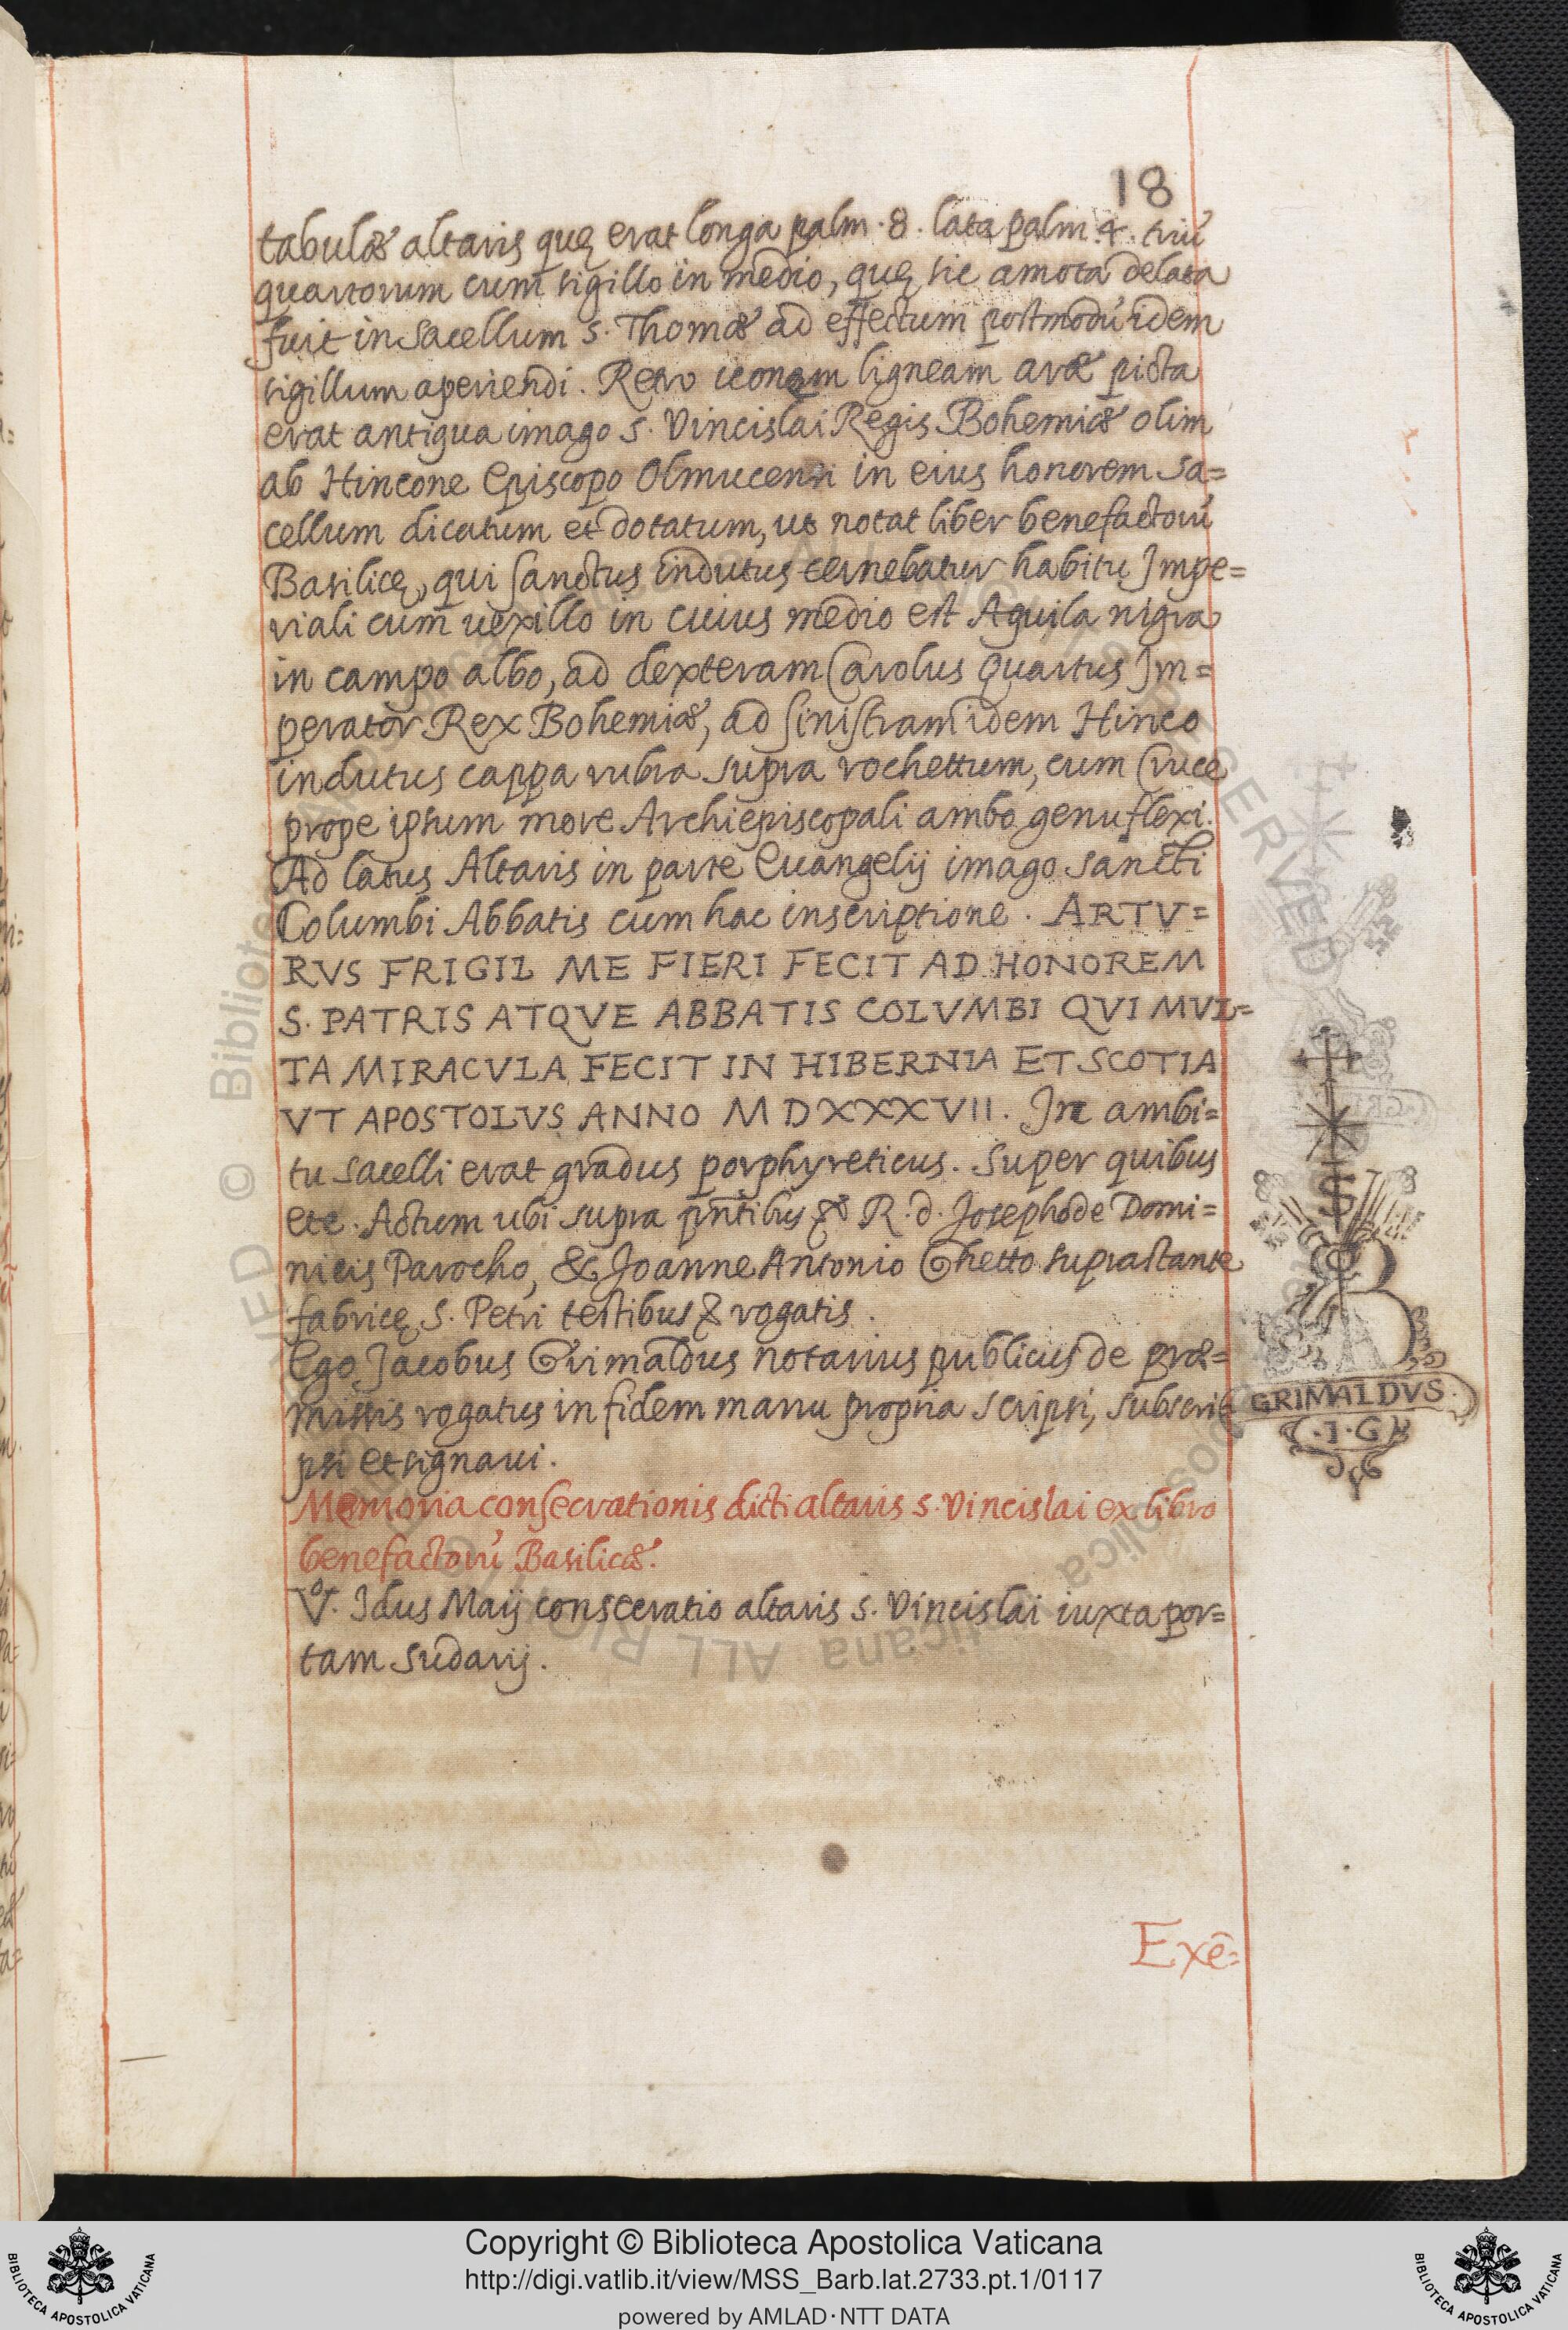 18
tabulæ altaris quę erat longa palm. 8. lata palm. 4. triũ
quartorum cum sigillo in medio, quę sic amota delata
fuit in Sacellum S. Thomæ ad effectum postmodũ idem
sigillum aperiendi. Retro iconam ligneam aræ picta
erat antiqua imago S. Vincislai Regis Bohemiæ olim
ab Hincone Episcopo Olmucensi in eius honorem Sa=
cellum dicatum et dotatum, ut notat liber benefactorũ
Basilicę, qui Sanctus indutus cernebatur habitu Impe=
riali cum uexillo in cuius medio est Aquila nigra
in campo albo, ad dexteram Carolus Quartus Im=
perator Rex Bohemiæ, ad sinistram idem Hinco
indutus cappa rubra supra rochettum, cum Cruce
prope ipsum more Archiepiscopali ambo genuflexi.
Ad latus Altaris in parte Euangelij imago Sancti
Columbi Abbatis cum hac inscriptione. ARTV=
RVS FRIGIL ME FIERI FECIT AD HONOREM
S. PATRIS ATQVE ABBATIS COLVMBI QVI MVL=
TA MIRACVLA FECIT IN HIBERNIA ET SCOTIA
VT APOSTOLVS ANNO MDXXXVII. In ambi=
tu sacelli erat gradus porphyreticus. Super quibus
etc. Actum ubi supra pn̄tibus R. d. Joseph de Domi=
nicis Parocho, & Joanne Antonio Ghetto suprastante
fabricę S. Petri testibus rogatis.
Ego Jacobus Grimaldus notarius publicus de præ=
missis rogatus in fidem manu propria scripsi, subscri=
psi et signaui.
GRIMALDVS
.I.G
Memoria consecrationis dicti altaris S. Vincislai ex libro
benefactorũ Basilicæ.
V.º Idus Maij consecratio altaris S. Vincislai iuxta por=
tam Sudarij.
Exē=
Copyright © Biblioteca Apostolica Vaticana
http://digi.vatlib.it/view/MSS_Barb.lat.2733.pt.1/0117
powered by AMLAD·NTT DATA
BIBLIOTECA APOSTOLICA VATICANA
BIBLIOTECA APOSTOLICA VATICANA